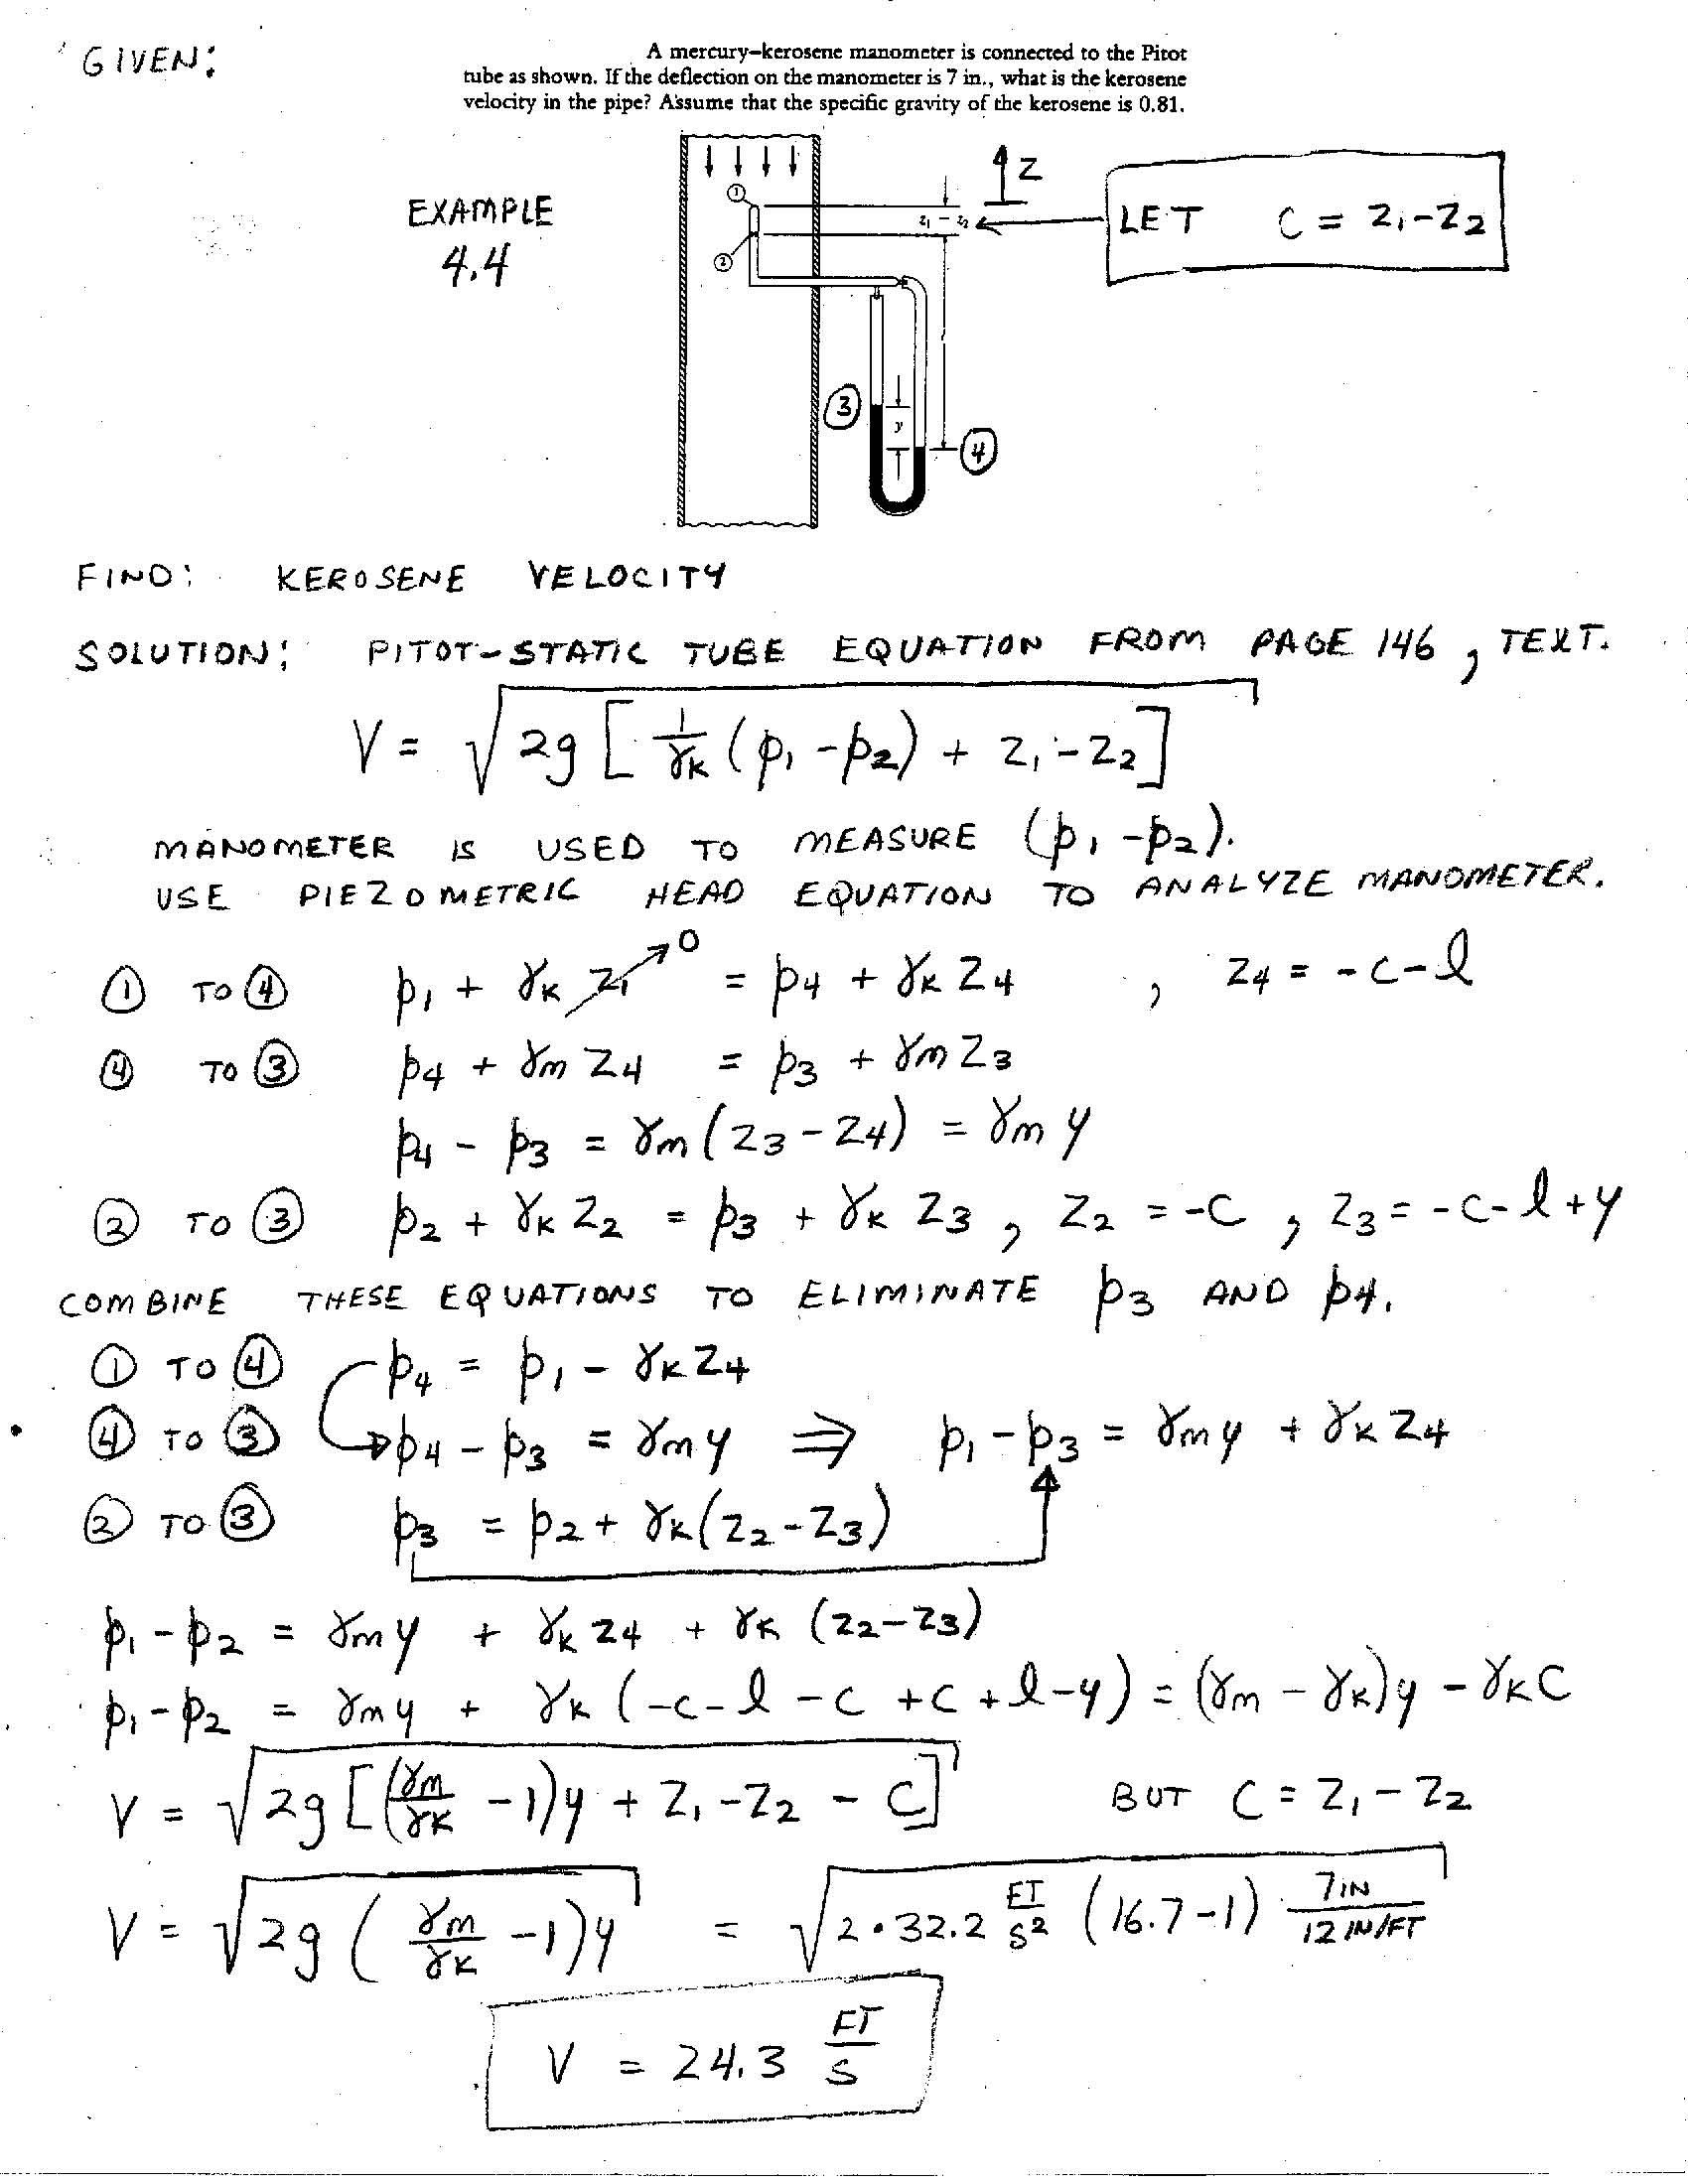 GIVEN:
A mercury–kerosene manometer is connected to the Pitot
tube as shown. If the deflection on the manometer is 7 in., what is the kerosene
velocity in the pipe? Assume that the specific gravity of the kerosene is 0.81.
EXAMPLE
4.4
① 
z₁ − z₂
②
Z
LET C = Z₁-Z₂
③
y
④
FIND: KEROSENE VELOCITY
SOLUTION: PITOT-STATIC TUBE EQUATION FROM PAGE 146, TEXT.
V = √2g [ 1/γk (p₁ - p₂) + Z₁ - Z₂ ]
MANOMETER IS USED TO MEASURE (p₁ - p₂).
USE PIEZOMETRIC HEAD EQUATION TO ANALYZE MANOMETER.
① TO ④ p₁ + γk Z₁ → 0 = p₄ + γk Z₄ , Z₄ = -C-l
④ TO ③ p₄ + γm Z₄ = p₃ + γm Z₃
p₄ - p₃ = γm (Z₃ - Z₄) = γm y
② TO ③ p₂ + γk Z₂ = p₃ + γk Z₃ , Z₂ = -C , Z₃ = -C-l+y
COMBINE THESE EQUATIONS TO ELIMINATE p₃ AND p₄.
① TO ④ p₄ = p₁ - γk Z₄
④ TO ③ p₄ - p₃ = γm y ⇒ p₁ - p₃ = γm y + γk Z₄
② TO ③ p₃ = p₂ + γk (Z₂ - Z₃)
p₁ - p₂ = γm y + γk Z₄ + γk (Z₂ - Z₃)
p₁ - p₂ = γm y + γk (-C-l -C +C +l-y) = (γm - γk)y - γk C
V = √2g [(γm/γk - 1)y + Z₁ - Z₂ - C] BUT C = Z₁ - Z₂
V = √2g (γm/γk - 1)y = √2•32.2 FT/S² (16.7-1) 7IN/12 IN/FT
V = 24.3 FT/S